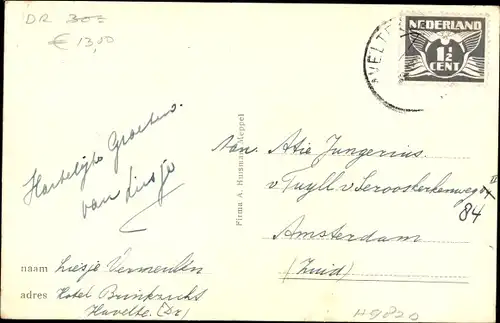 DR 30=
€ 13,50
NEDERLAND
1½
CENT
AVELTE
Hartelijke Groeten.
van Liesje
Firma A. Huisman, Meppel
Aan. Atie Jungerius.
v. Tuyll v. Serooskerkenweg
84 II
Amsterdam
(Zuid)
naam Liesje Vermeulén
adres Hotel Brinkzicht
Havelte. (Dr)